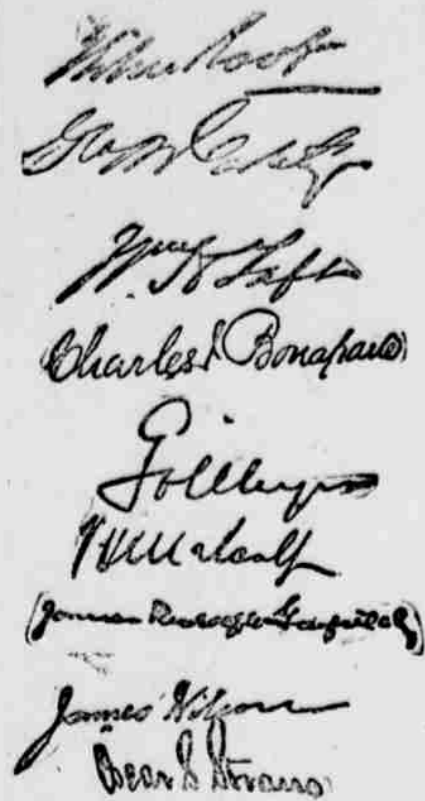 Elihu Root
Geo B Cortelyou
Wm H Taft
Charles J. Bonaparte
G v L Meyer
V H Metcalf
James Rudolph Garfield
James Wilson
Oscar S Straus